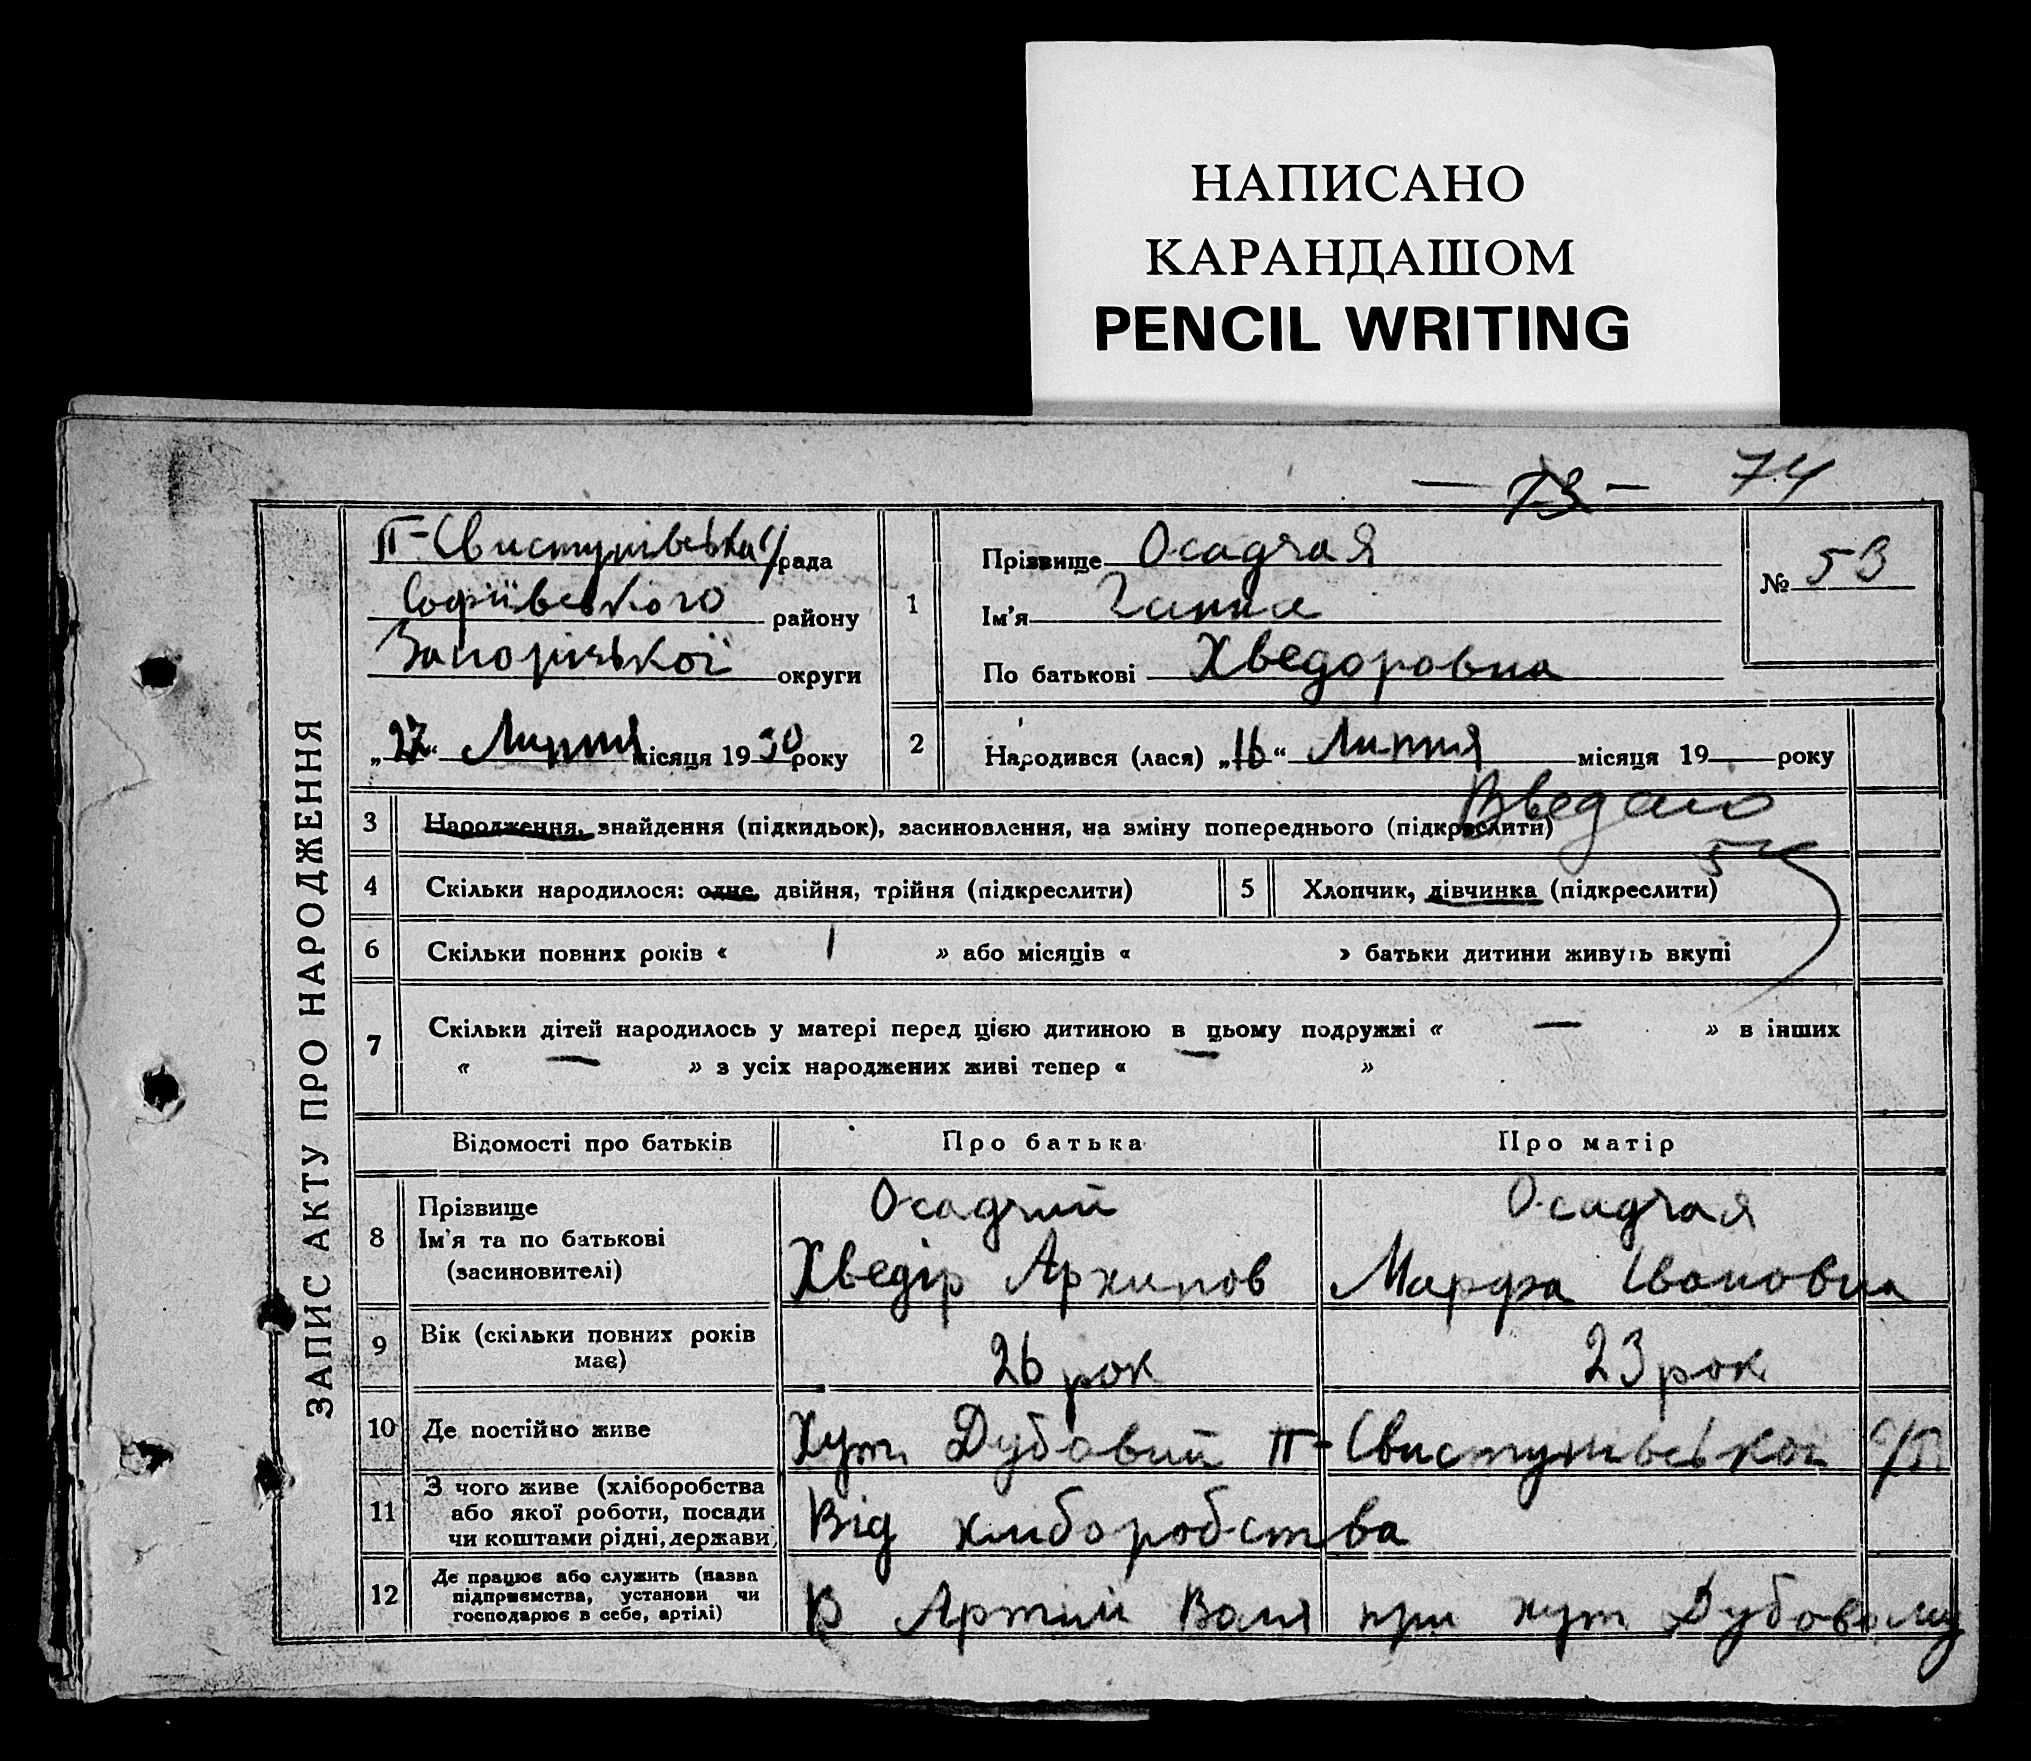 НАПИСАНО
КАРАНДАШОМ
PENCIL WRITING
— 73 — 74
ЗАПИС АКТУ ПРО НАРОДЖЕННЯ
П-Свистунівська с/рада
Софіївського району
Запорізької округи
„27“ Липня місяця 1930 року
1 Прізвище Осадчая
Ім'я Ганна
По батькові Хведоровна
№ 53
2 Народився (лася) „16“ Липня місяця 19 — року
Введено
3 Народження, знайдення (підкидьок), засиновлення, на зміну попереднього (підкреслити)
54
4 Скільки народилося: одне, двійня, трійня (підкреслити) 5 Хлопчик, дівчинка (підкреслити)
6 Скільки повних років « 1 » або місяців « » батьки дитини живуть вкупі
7 Скільки дітей народилось у матері перед цією дитиною в цьому подружжі « — » в інших
« — » з усіх народжених живі тепер « — »
Відомості про батьків Про батька Про матір
8 Прізвище
Ім'я та по батькові
(засиновителі)
Осадчий
Хведір Архипов
Осадчая
Марфа Івановна
9 Вік (скільки повних років
має)
26 рок
23 рок
10 Де постійно живе Хут. Дубовий П-Свистунівської с/р
11 З чого живе (хліборобства
або якої роботи, посади
чи коштами рідні, держави)
Від хліборобства
12 Де працює або служить (назва
підприємства, установи чи
господарює в себе, артілі)
В Артілі Воля при хут Дубовому